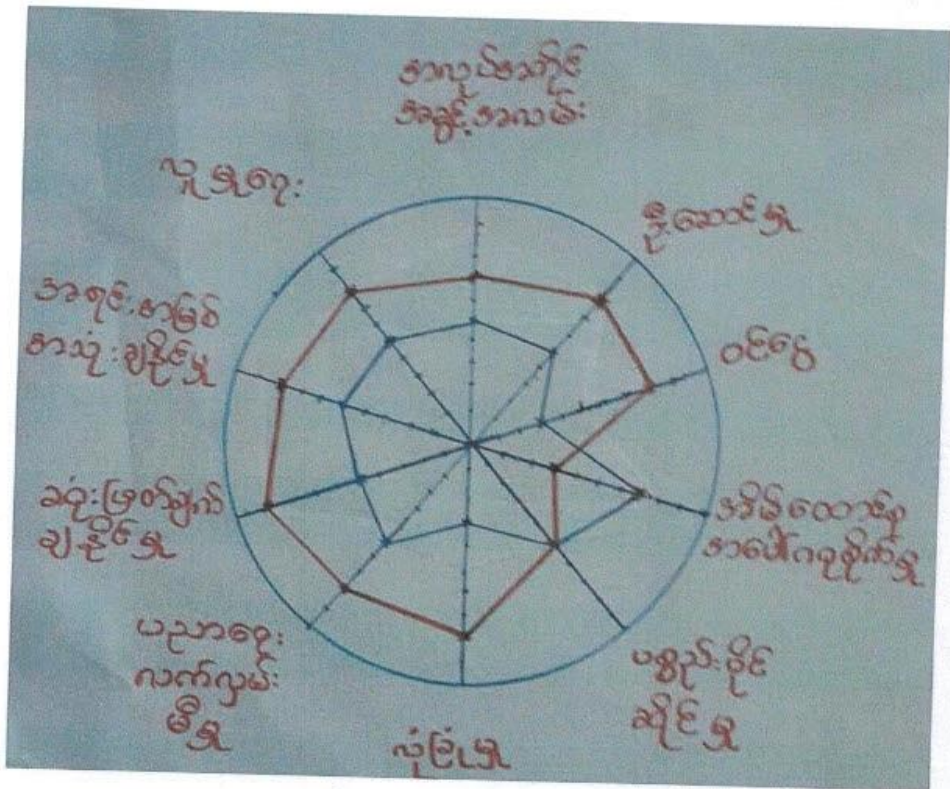 အလုပ်အကိုင်
အခွင့်အလမ်း
ဦးဆောင်မှု
ဝင်ငွေ
အိမ်ထောင်စု
အပေါ်ဂရုစိုက်မှု
ပစ္စည်းပိုင်
ဆိုင်မှု
လုံခြုံမှု
ပညာရေး
လက်လှမ်း
မီမှု
ဆုံးဖြတ်ချက်
ချနိုင်မှု
အရင်းအမြစ်
အသုံးချနိုင်မှု
လူမှုရေး